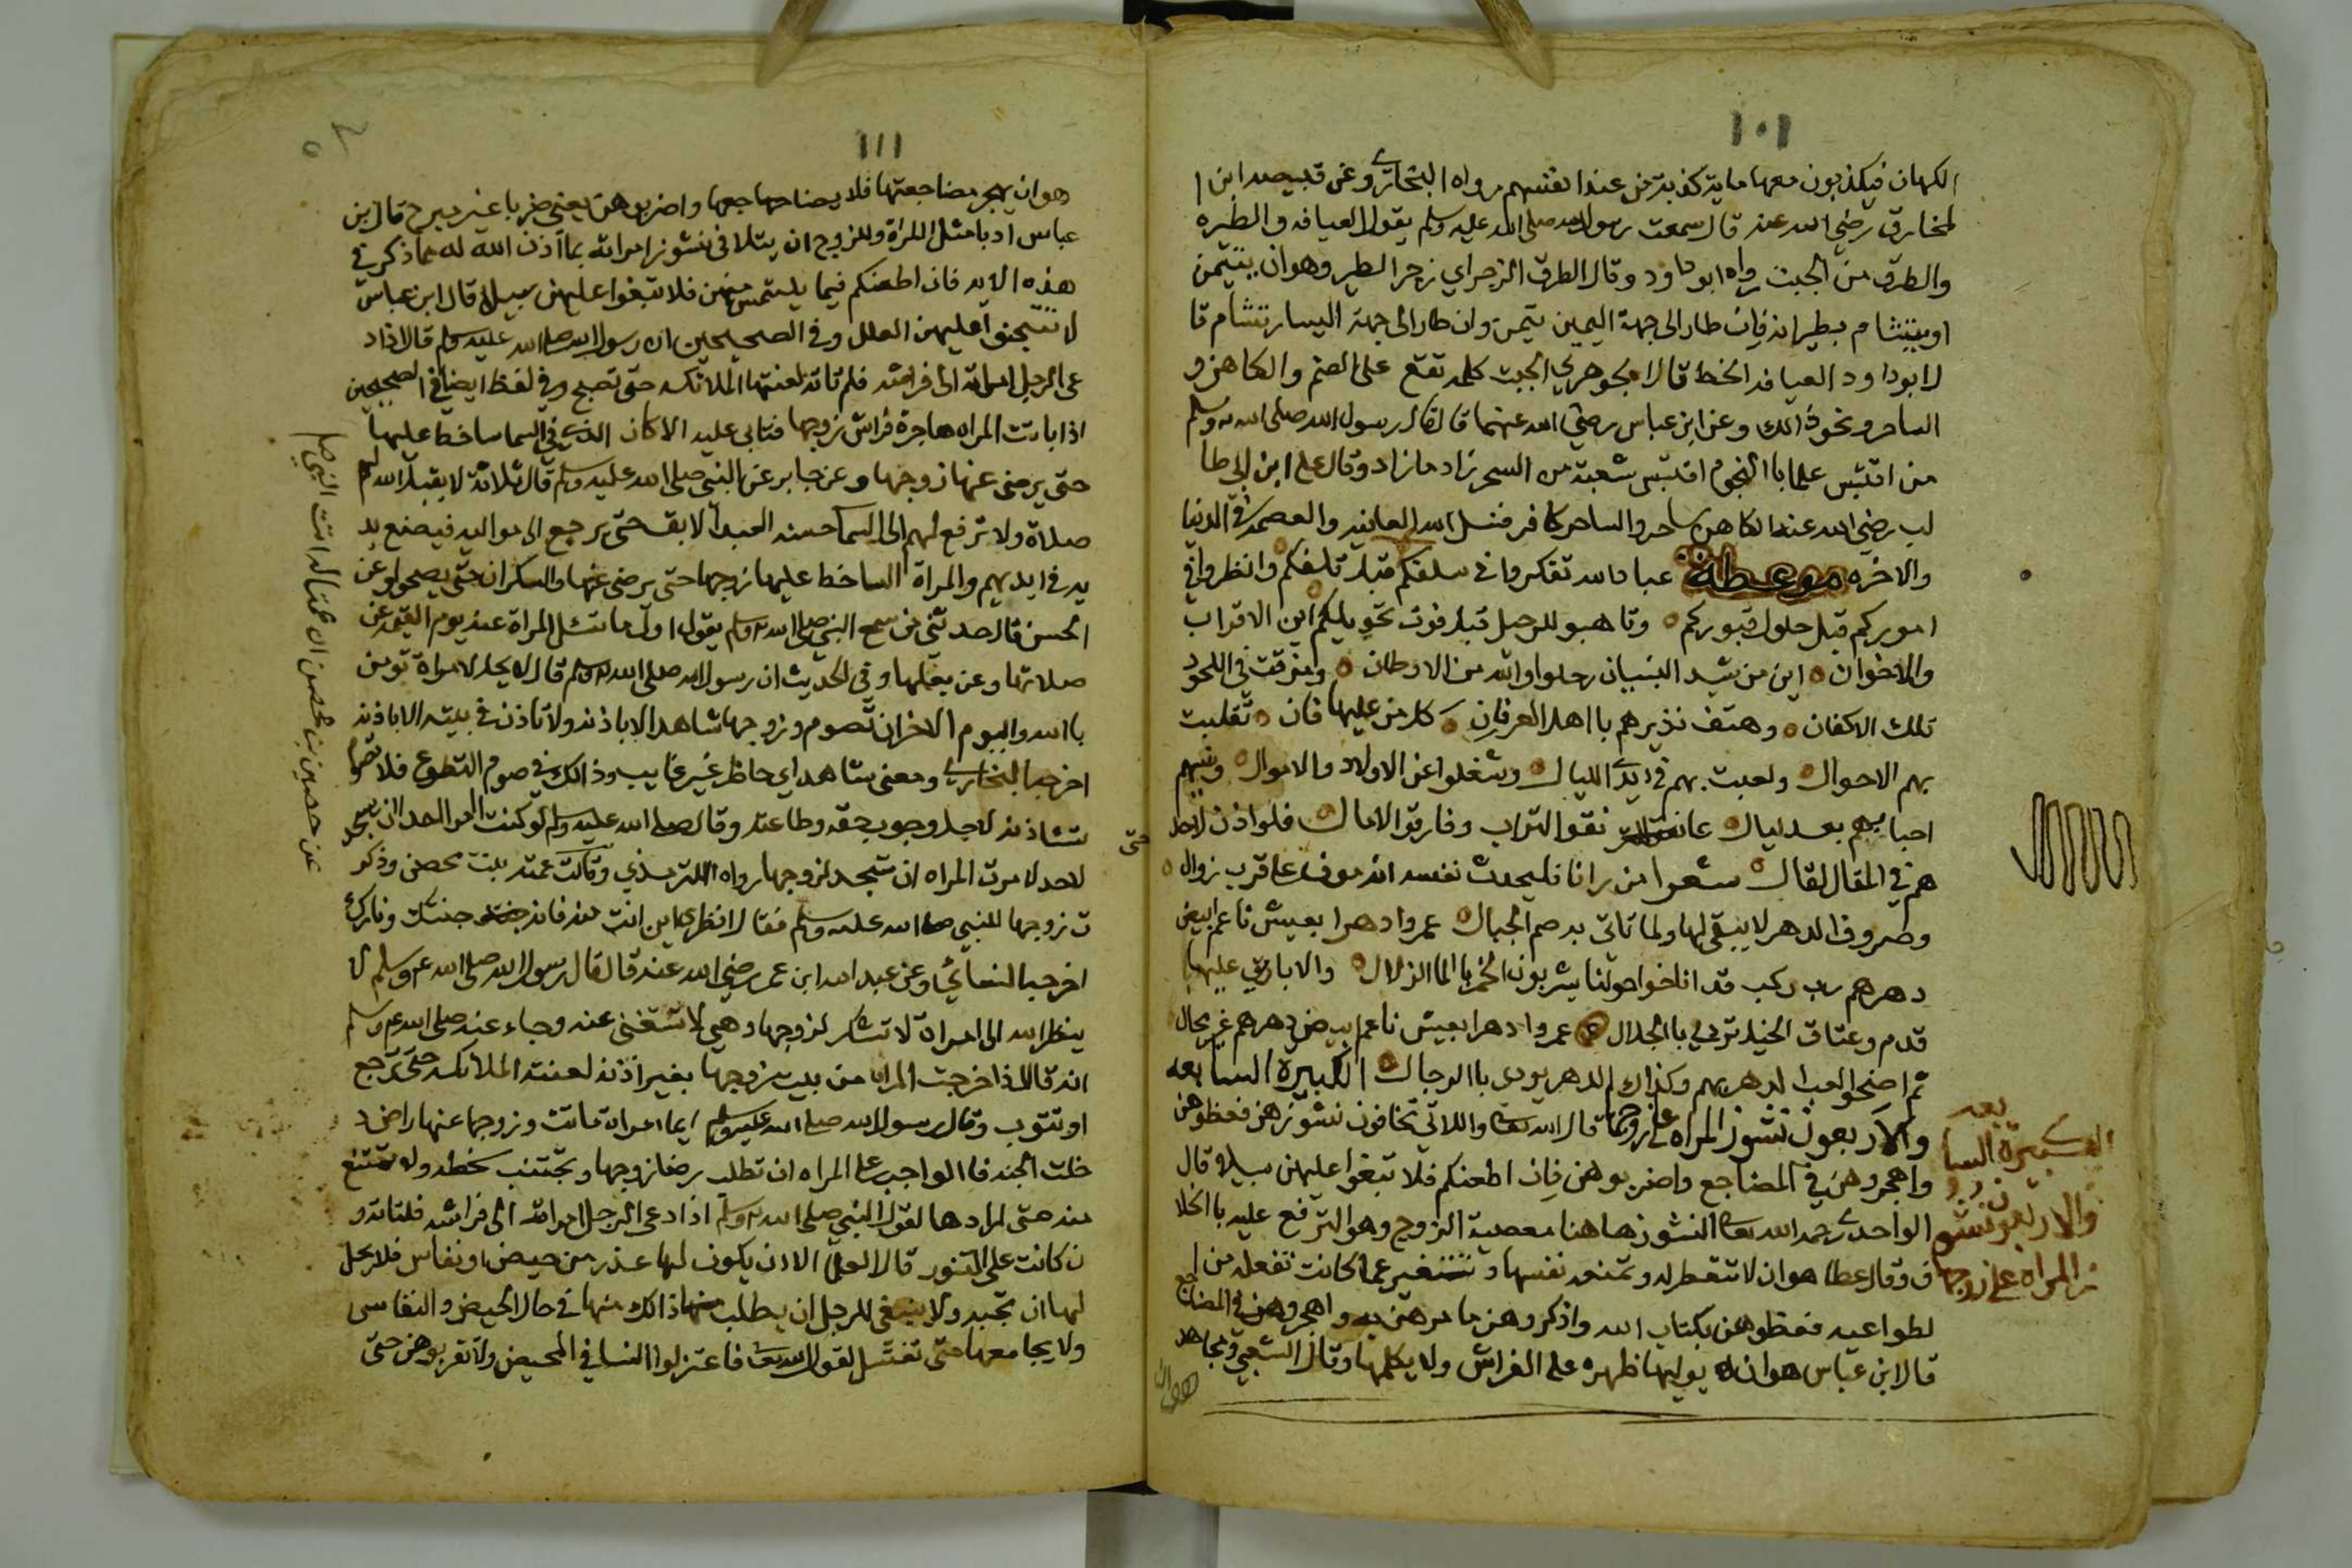 ١٠١
الكهان فيكذبون معها ماية كذبة من عند انفسهم رواه البخاري وعن قبيصه ابن ا
لمخارق رضي الله عنه قال سمعت رسول الله صلى الله عليه وسلم يقول العيافه والطيره
والطرق من الجبت رواه ابو داود وقال الطرق الزجر اي زجر الطير وهو ان يتيمن
او يتشام بطيرانه فان طار الى جهة اليمين تيمن وان طار الى جهة اليسار تشام قا
ل ابو داود العيافه الخط قال الجوهري الجبت كلمه تقع على الصنم والكاهن و
الساحر ونحو ذالك وعن ابن عباس رضي الله عنهما قال قال رسول الله صلى الله وسلم
من اقتبس علما با النجوم اقتبس شعبة من السحر زاد ما زاد وقال علي ابن ابي طا
لب رضي الله عنه الكاهن ساحر والساحر كافر فنسل الله العافيه والعصمه في الدنيا
والاخره موعظه عباد الله تفكروا في سلفكم قبل تلفكم وانظروا في
اموركم قبل حلول قبوركم وتاهبو للرحيل قبل فوت تحويلكم اين الاقراب
والاخوان اين من شيد البنيان رحلوا والله من الاوطان ومزقت في اللحود
تلك الاكفان وهتف نذيرهم يا اهل العرفان كل من عليها فان تقلبت
بهم الاحوال ولعبت بهم في ايدي الليال وشغلوا عن الاولاد والاموال ونسيهم
احبابهم بعد ليال عانقوا التراب وفارقوا الامال فلو اذن لاحد
هم في المقال لقال شعرا من رانا فليحدث نفسه انه موف على قرب زوال
وصروف الدهر لا يبقى لها ولما تاتي به صم الجبال عمروا دهرا بعيش ناعم ابيض
دهرهم رب ركب قد اناخوا حولنا يشربون الخمر با الما الزلال والاباريق عليها
قدم وعتاق الخيل تردي با الجلال عمروا دهرا بعيش ناعم ابيض دهرهم غير محال
ثم اضحوا لعب الدهر بهم وكذاك الدهر يودي با الرجال الكبيرة السابعه
والاربعون نشوز المراه على زوجها قال الله تعالى واللاتي تخافون نشوزهن فعظوهن
واهجروهن في المضاجع واضربوهن فان اطعنكم فلا تبغوا عليهن سبيلا قال
الواحدي رحمه الله تعالى النشوز ها هنا معصية الزوج وهو الترفع عليه با الخلا
ف وقال عطا هو ان لا تتعطر له وتمنعه نفسها وتتغير عما كانت تفعله من ا
لطواعيه فعظوهن بكتاب الله واذكروهن ما امرهن به واهجروهن في المضاجع
قال ابن عباس هو ان يوليها ظهره على الفراش ولا يكلمها وقال الشعبي ومجاهد
هو ان
الكبيرة السا
بعه
والاربعون نشو
ز المراه على زوجها
١١١
هو ان يهجر مضاجعتها فلا يضاجعها واضربوهن يعني ضربا غير مبرح قال بن
عباس ادبا مثل اللمراة وللزوج ان يتلافى نشوز امراته بما اذن الله له مما ذكر في
هذه الايه فان اطعنكم فيما يلتمس منهن فلا تبغوا عليهن سبيلا قال ابن عباس
لا تتجنوا عليهن العلل وفي الصحيحين ان رسول الله صلى الله عليه وسلم قال اذا د
عى الرجل امراته الى فراشه فلم تاته لعنتها الملائكه حتى تصبح وفي لفظ ايضا في الصحيحين
اذا باتت المراه هاجرة فراش زوجها فتابى عليه الا كان الذي في السما ساخط عليها
حتى يرضى عنها زوجها وعن جابر عن النبي صلى الله عليه وسلم قال ثلاثة لا يقبل الله لهم
صلاة ولا ترفع لهم الى السما حسنه العبد الابق حتى يرجع الى مواليه فيضع يد
يه في ايديهم والمراة الساخط عليها زوجها حتى يرضى عنها والسكران حتى يصحوا وعن
الحسن قال حدثني من سمع النبي صلى الله وسلم يقول اول ما تسئل المراة عنه يوم القيمه عن
صلاتها وعن بعلها وفي الحديث ان رسول الله صلى الله وسلم قال لا يحل لامراة تومن
با الله واليوم الاخر ان تصوم وزوجها شاهد الا باذنه ولا تاذن في بيته الا باذنه
اخرجه البخاري ومعنى شاهد اي حاظر غير غايب وذالك في صوم التطوع فلا تصوم
حتى تستاذنه لاجل وجوب حقه وطاعته وقال صلى الله عليه وسلم لو كنت امرا احد ان يسجد
لاحد لامرت المراه ان تسجد لزوجها رواه الترمذي وقالت عمته بنت محصن وذكر
ت زوجها للنبي صلى الله عليه وسلم فقال انظري اين انت منه فانه جنتك ونارك
اخرجه النسائي وعن عبد الله ابن عمر رضي الله عنه قال قال رسول الله صلى الله عليه وسلم لا
ينظر الله الى امراة لا تشكر لزوجها وهي لا تستغني عنه وجاء عنه صلى الله عليه وسلم
انه قال اذا خرجت المراه من بيت زوجها بغير اذنه لعنته الملائكه حتى ترجع
او تتوب وقال رسول الله صلى الله عليه وسلم ايما امراة ماتت وزوجها عنها راض د
خلت الجنه فا الواجب على المراه ان تطلب رضا زوجها وتجتنب سخطه ولا تمتنع
منه متى ارادها لقول النبي صلى الله وسلم اذا دعى الرجل امراته الى فراشه فلتاته و
ن كانت على التنور قال العلما الا ان يكون لها عذر من حيض او نفاس فلا يحل
لها ان تجيبه ولا ينبغي للرجل ان يطلب منها ذالك منها في حال الحيض والنفاس
ولا يجامعها حتى تغتسل لقول الله تعالى فاعتزلوا النسا في المحيض ولا تقربوهن حتى
عن حصين بن محصن ان عمة له اتت النبي صلى